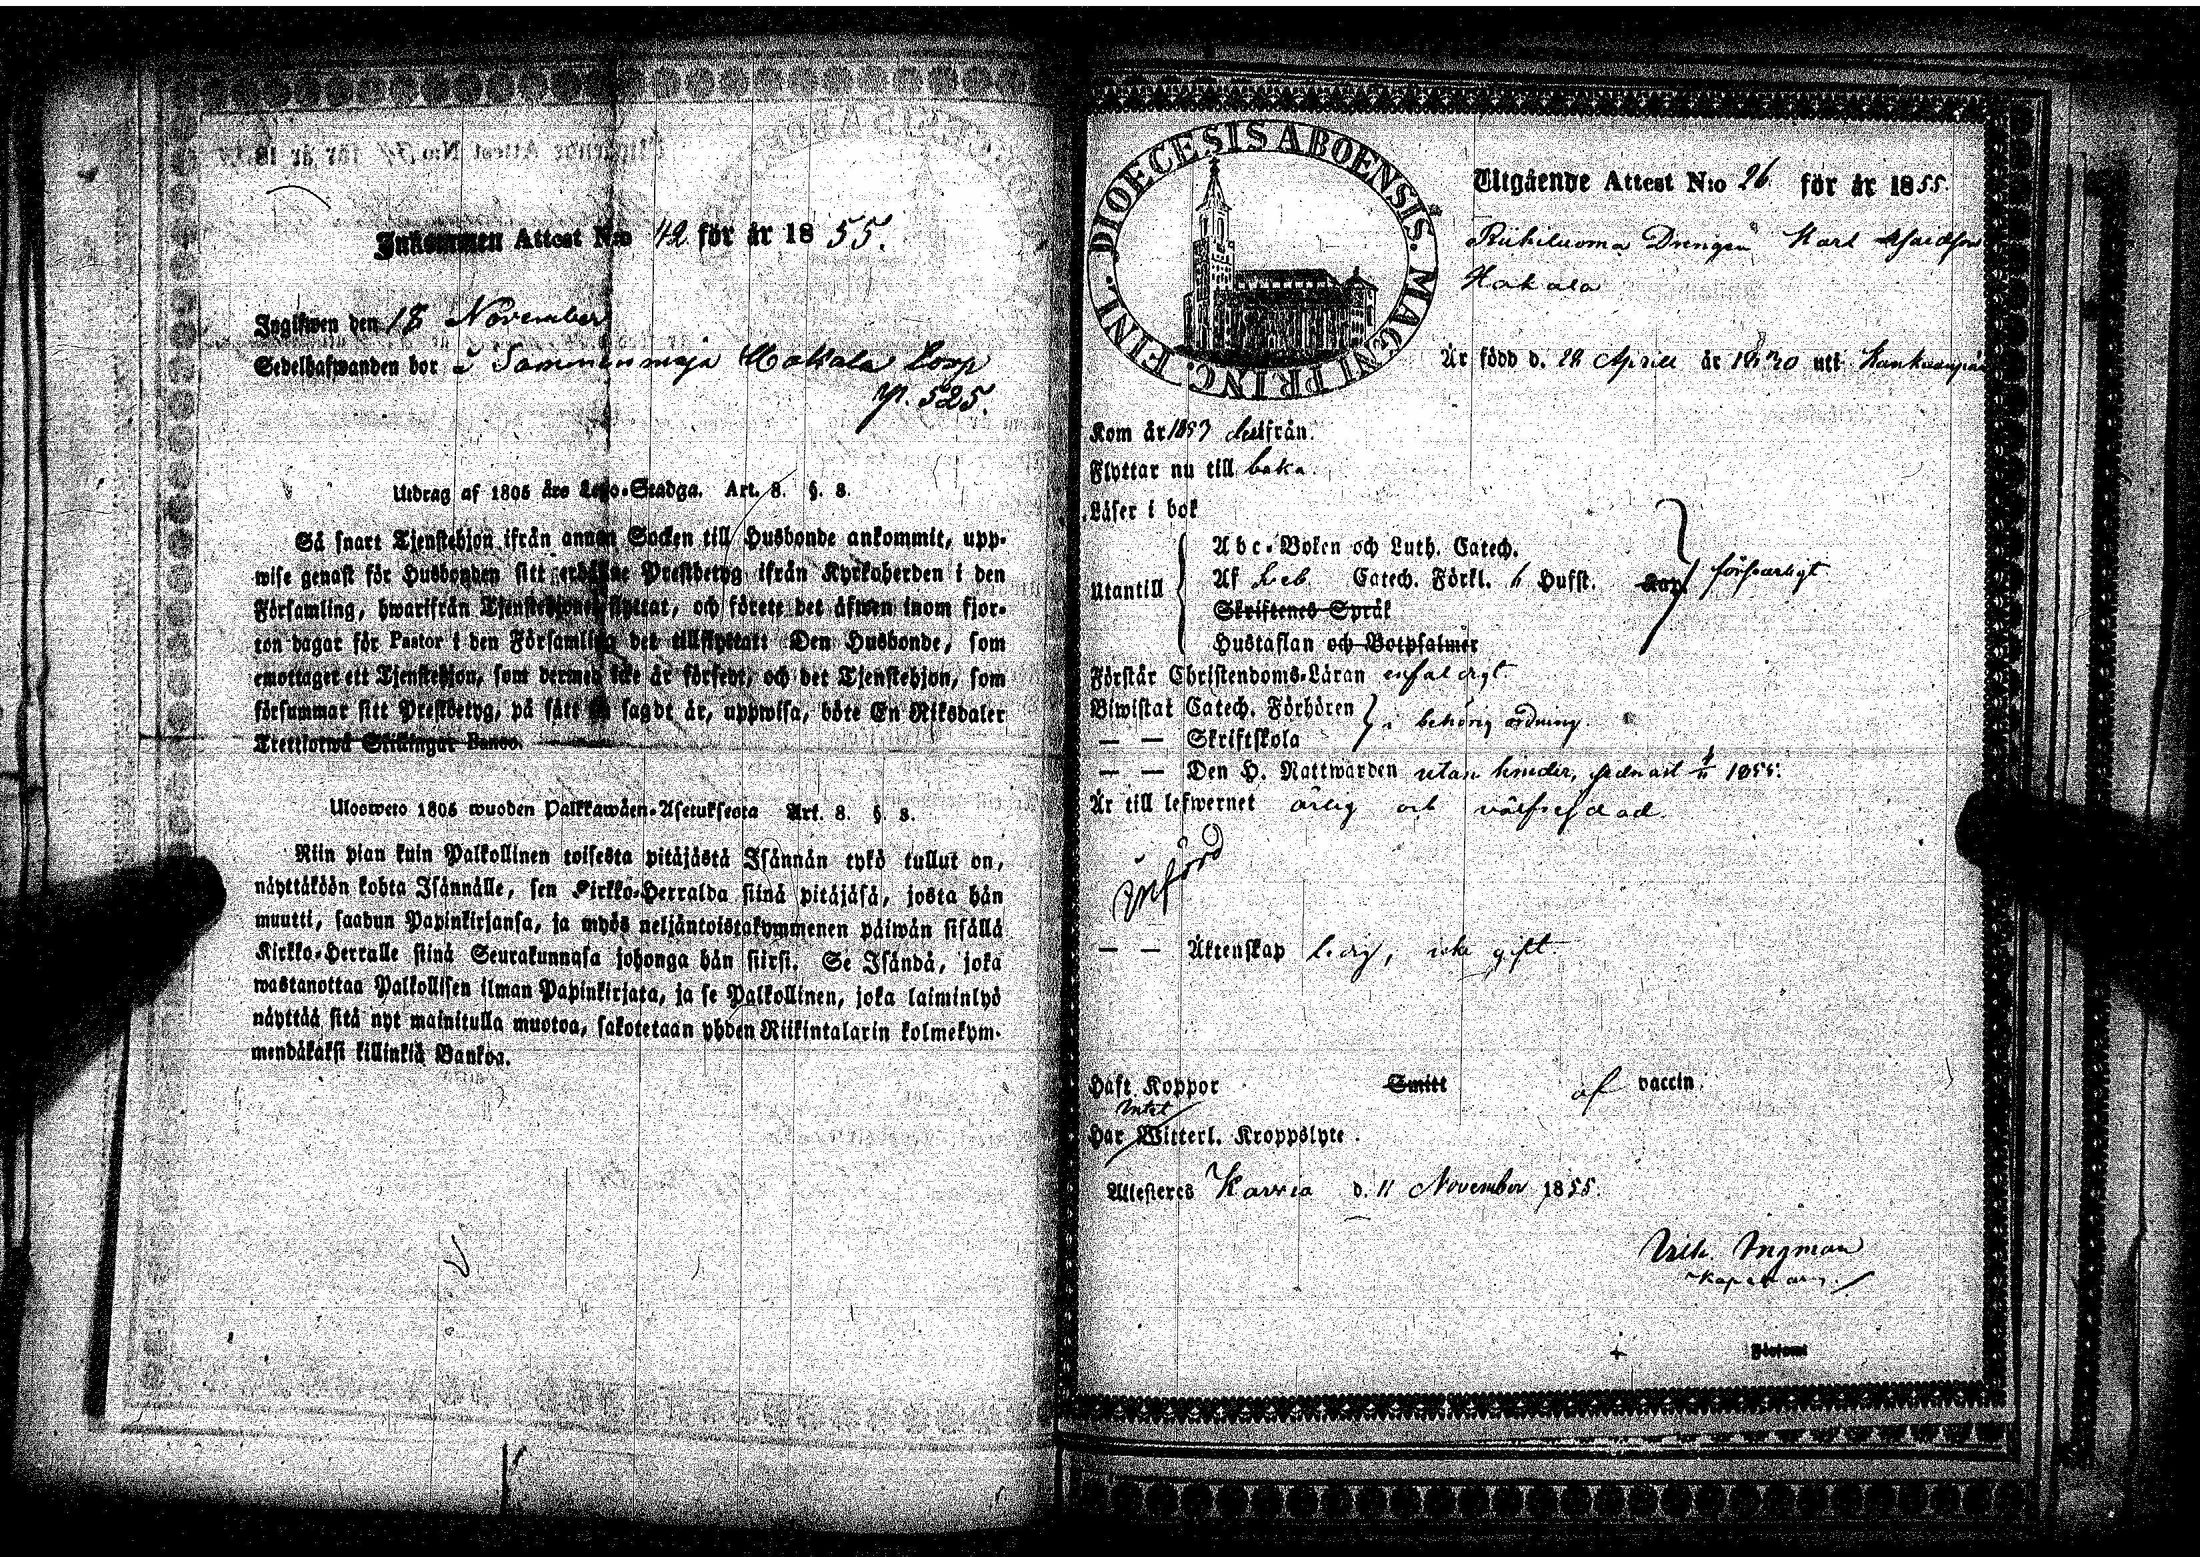 Inkommen Attest N:o 42 för år 1855.
Ingifwen den 18 November
Sedelhafwanden bor å Sammanmaja Hakala Torp
p. 525.
Utdrag af 1805 års Lego-Stadga. Art. 8. §. 8.
Så snart Tjenstehjon ifrån annan Socken till Husbonde ankommit, upp-
wise genast för Husbonden sitt erhållne Prestbetyg ifrån Kyrkoherden i den
Församling, hwarifrån Tjenstehjonet flyttat, och förete det äfwen inom fjor-
ton dagar för Pastor i den Församling det tillflyttat: Den Husbonde, som
emottaget ett Tjenstehjon, som dermed icke är försedt, och det Tjenstehjon, som
försummar sitt Prestbetyg, på sätt sagdt är, uppwisa, böte En Riksdaler
Trettiotwå Skillingar Banco.
Ulosweto 1805 wuoden Palkkawäen-Asetuksesta Art. 8. §. 8.
Niin pian kuin Palkollinen toisesta pitäjästä Isännän tykö tullut on,
näyttäköön kohta Isännälle, sen Kirkko-Herralda siinä pitäjäsä, josta hän
muutti, saadun Papinkirjansa, ja myös neljäntoistakymmenen päiwän sisällä
Kirkko-Herralle siinä Seurakunnasa johonga hän siirsi. Se Isändä, joka
wastanottaa Palkollisen ilman Papinkirjata, ja se Palkollinen, joka laiminlyö
näyttää sitä nyt mainitulla muotoa, sakotetaan yhden Riikintalarin kolmekym-
mendäkaksi killinkiä Bankoa.
DIOECESIS ABOENSIS. MAGNI PRINC. FINL.
Utgående Attest N:o 26 för år 1855.
Drengen Karl
Hakala
Är född d. 22 Aprill år 1830 uti
Kom år 1853 derifrån.
Flyttar nu till baka.
Läser i bok
Utantill
Abc-Boken och Luth. Catech.
Af Catech. Förkl. Hufst. Kap. försvarligt
Skriftenes Språk
Hustaflan och Botpsalmer
Förstår Christendoms-Läran enfaldigt.
Biwistat Catech. Förhören
— — Skriftskola i behörig ordning.
— — Den H. Nattwarden utan hinder, sednast 4/11 1855.
Är till lefwernet ärlig och välfrejdad.
Införd
— — Äktenskap ledig, icke gift.
Haft Koppor Smitt af vaccin.
intet
Har Witterl. Kroppslyte.
Attesteres Karvia d. 11 November 1855.
Vilh. Ingman
Kapellan.